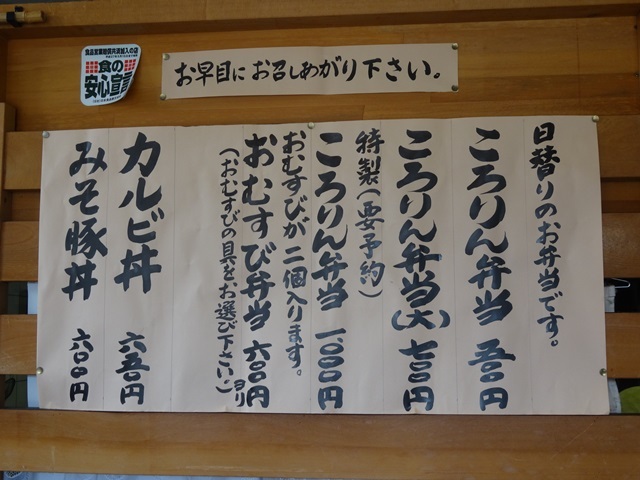 食品営業賠償共済加入の店
食の
安心宣言
お早目にお召しあがり下さい。
日替りのお弁当です。
ころりん弁当 五五〇円
ころりん弁当(大) 七五〇円
特製(要予約)
ころりん弁当 一、〇〇〇円
おむすびが二個入ります。
おむすび弁当 六〇〇円ヨリ
(おむすびの具をお選び下さい。)
カルビ丼 六五〇円
みそ豚丼 六〇〇円